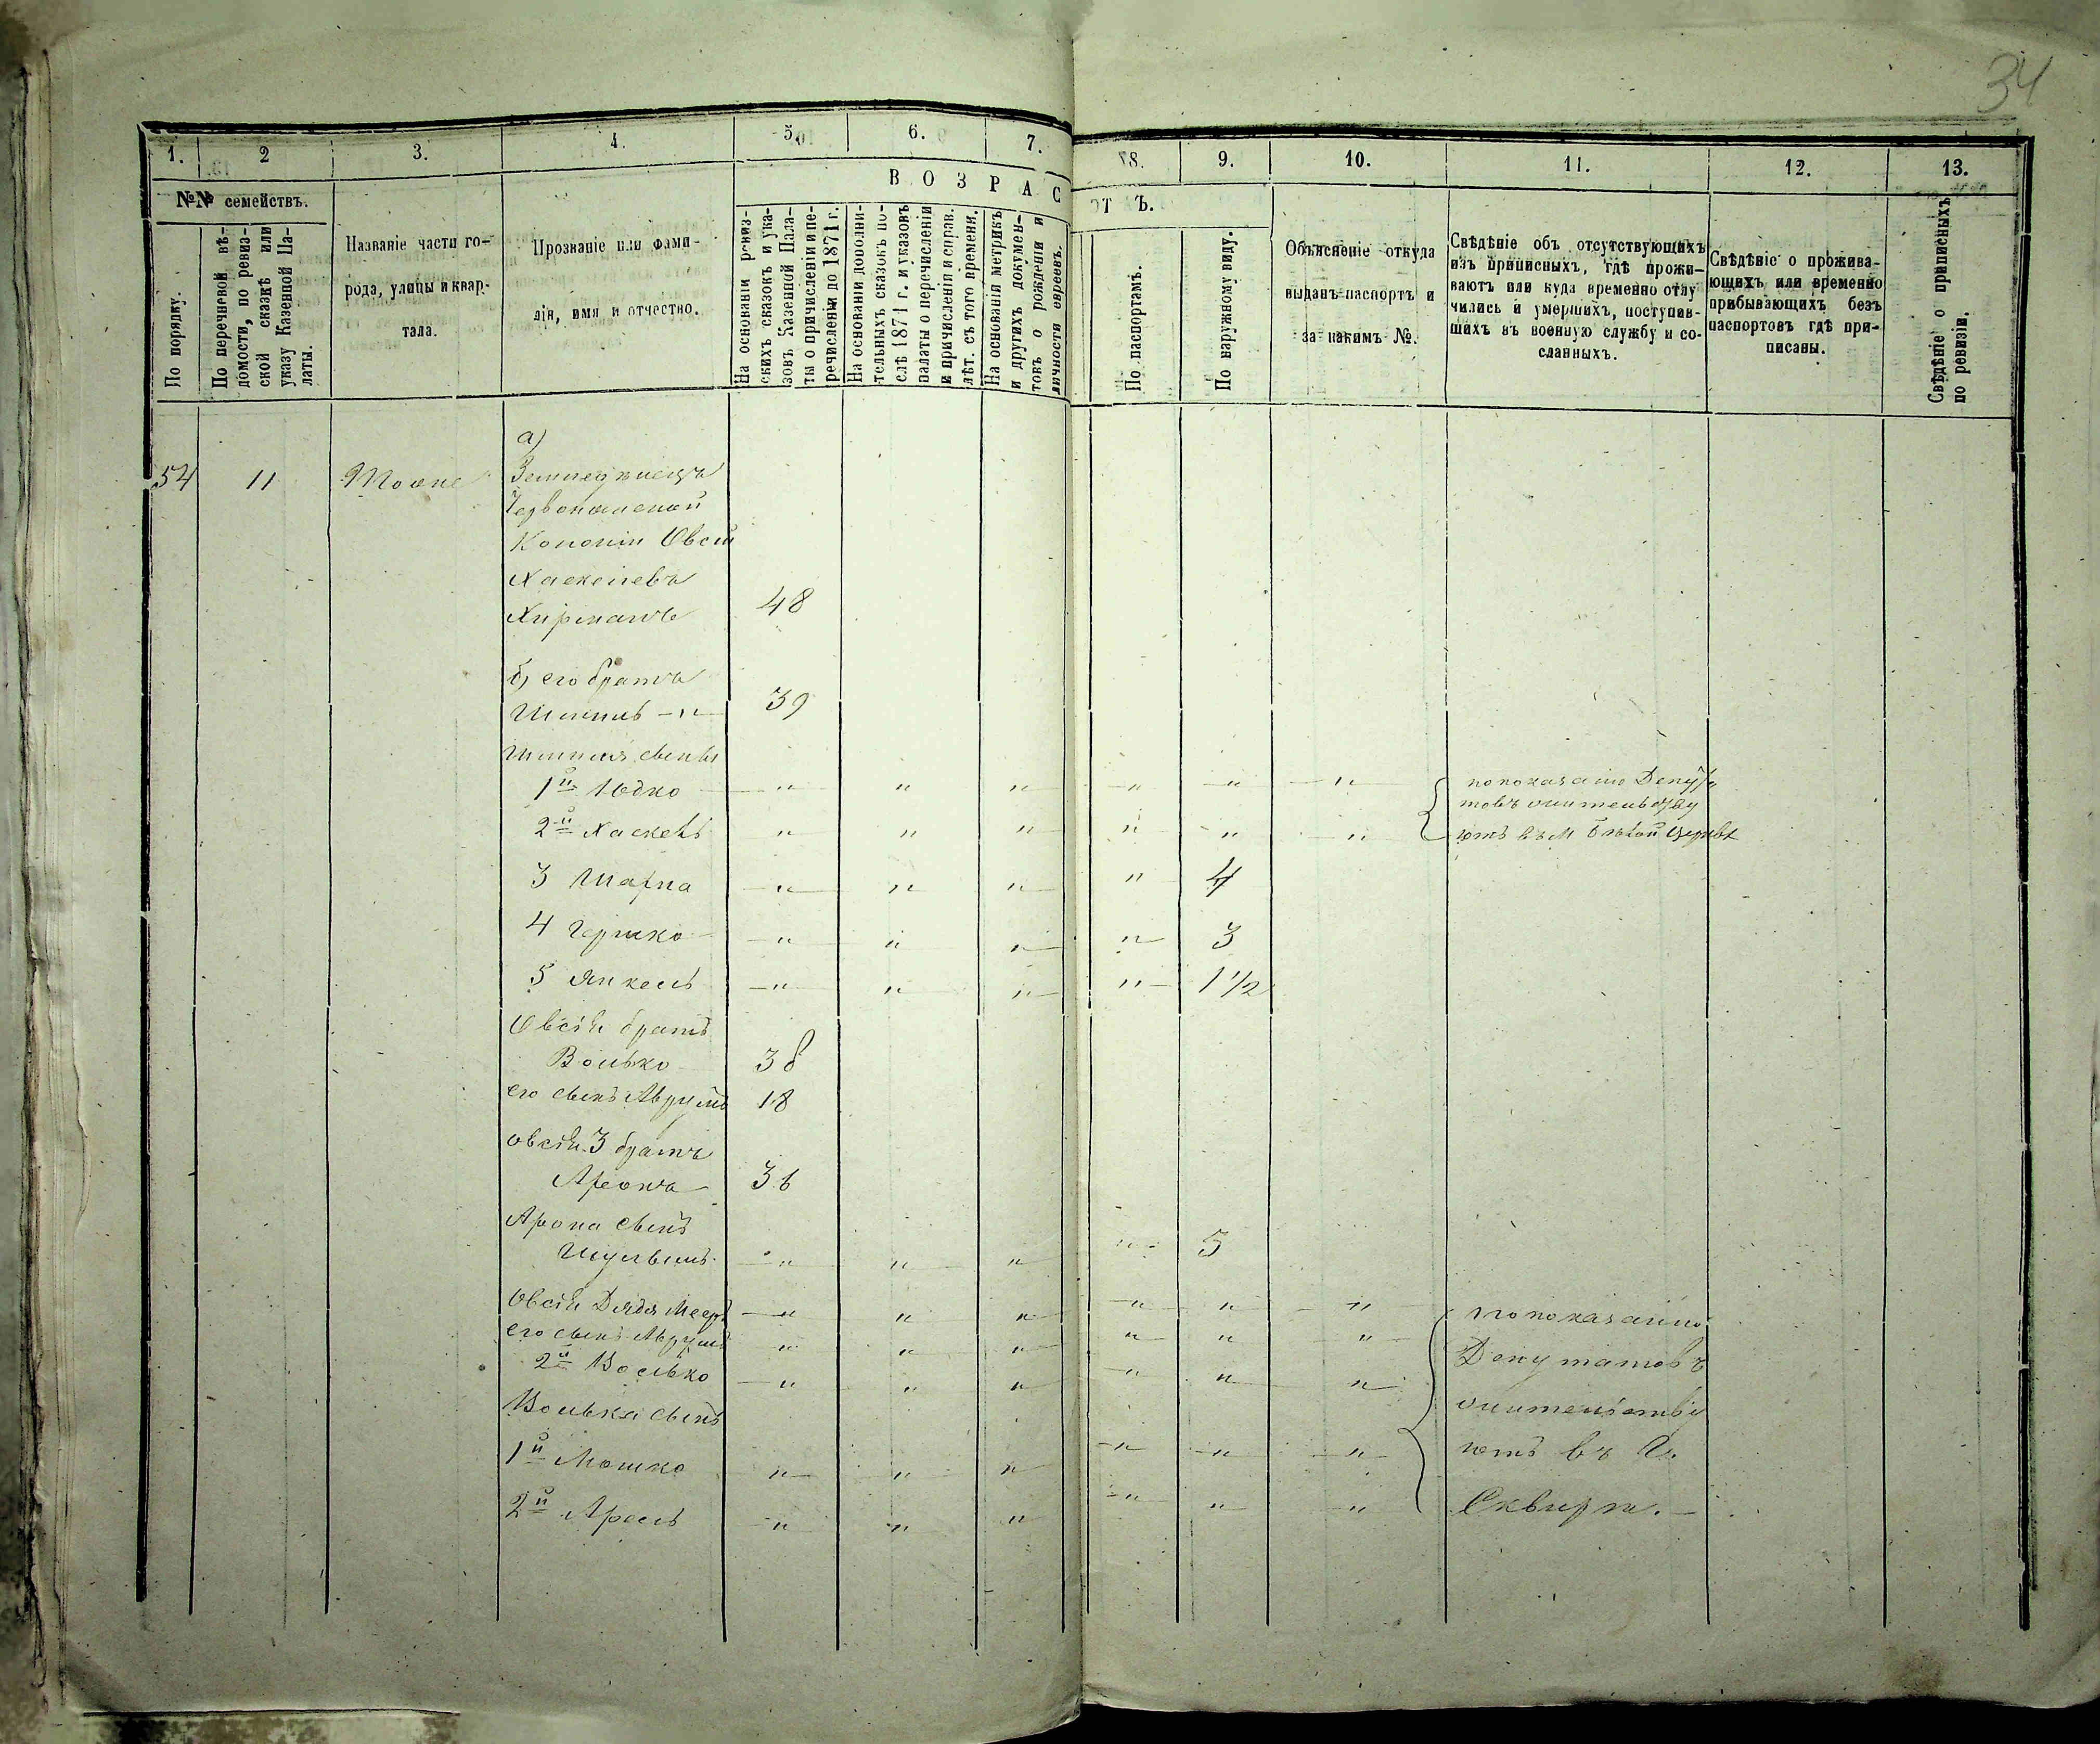 34
1. 2 3. 4. 5. 6. 7. 8. 9. 10. 11. 12. 13.
№№ семействъ.
По порядку.
По перечневой вѣ-
домости, по ревиз-
ской сказкѣ или
указу Казенной Па-
латы.
Названіе части го-
рода, улицы и квар-
тала.
Прозваніе или фами-
лія, имя и отчество.
ВОЗРАСТЪ.
На основаніи ревиз-
скихъ сказокъ и ука-
зовъ Казенной Пала-
ты о причисленіи и пе-
речисленіи до 1871 г.
На основаніи дополни-
тельныхъ сказокъ по-
слѣ 1871 г. и указовъ
палаты о перечисленіи
и причисленіи и справ.
лѣт. съ того времени.
На основаніи метрикъ
и другихъ докумен-
товъ о рожденіи и
личности евреевъ.
По паспортамъ.
По наружному виду.
Объясненіе откуда
выданъ паспортъ и
за какимъ №.
Свѣдѣніе объ отсутствующихъ
изъ приписныхъ, гдѣ прожи-
ваютъ или куда временно отлу
чились и умершихъ, поступив-
шихъ въ военную службу и со-
сланныхъ.
Свѣдѣніе о прожива-
ющихъ или временно
прибывающихъ безъ
паспортовъ гдѣ при-
писаны.
Свѣдѣніе о приписныхъ
по ревизіи.
а)
54 11 Тоже Земледѣлецъ
Колоніи Овсій
Хаскелевъ
48
б) его братъ
39
сыны
1й Юдко " " " " " " по показанію Депута
товъ
2й Хаскель " " " " " " ютъ въ М Бѣлой Церкви
3 " " " " 4
4 Гершко " " " " 3
5 Янкель " " " " 1 1/2
Овсія братъ
Волько 38
его сынъ Аврумъ 18
Овсія 3 братъ
Аронъ 36
Арона сынъ
" " " " 5
Овсія Дядя Мееръ " " " " " " по показанію
его сынъ Аврумъ " " " " " " Депутатовъ
2й Волько " " " " " "
Волька сынъ
1й Мошко " " " " " " ютъ въ г.
2й " " " " " " Сквирѣ.